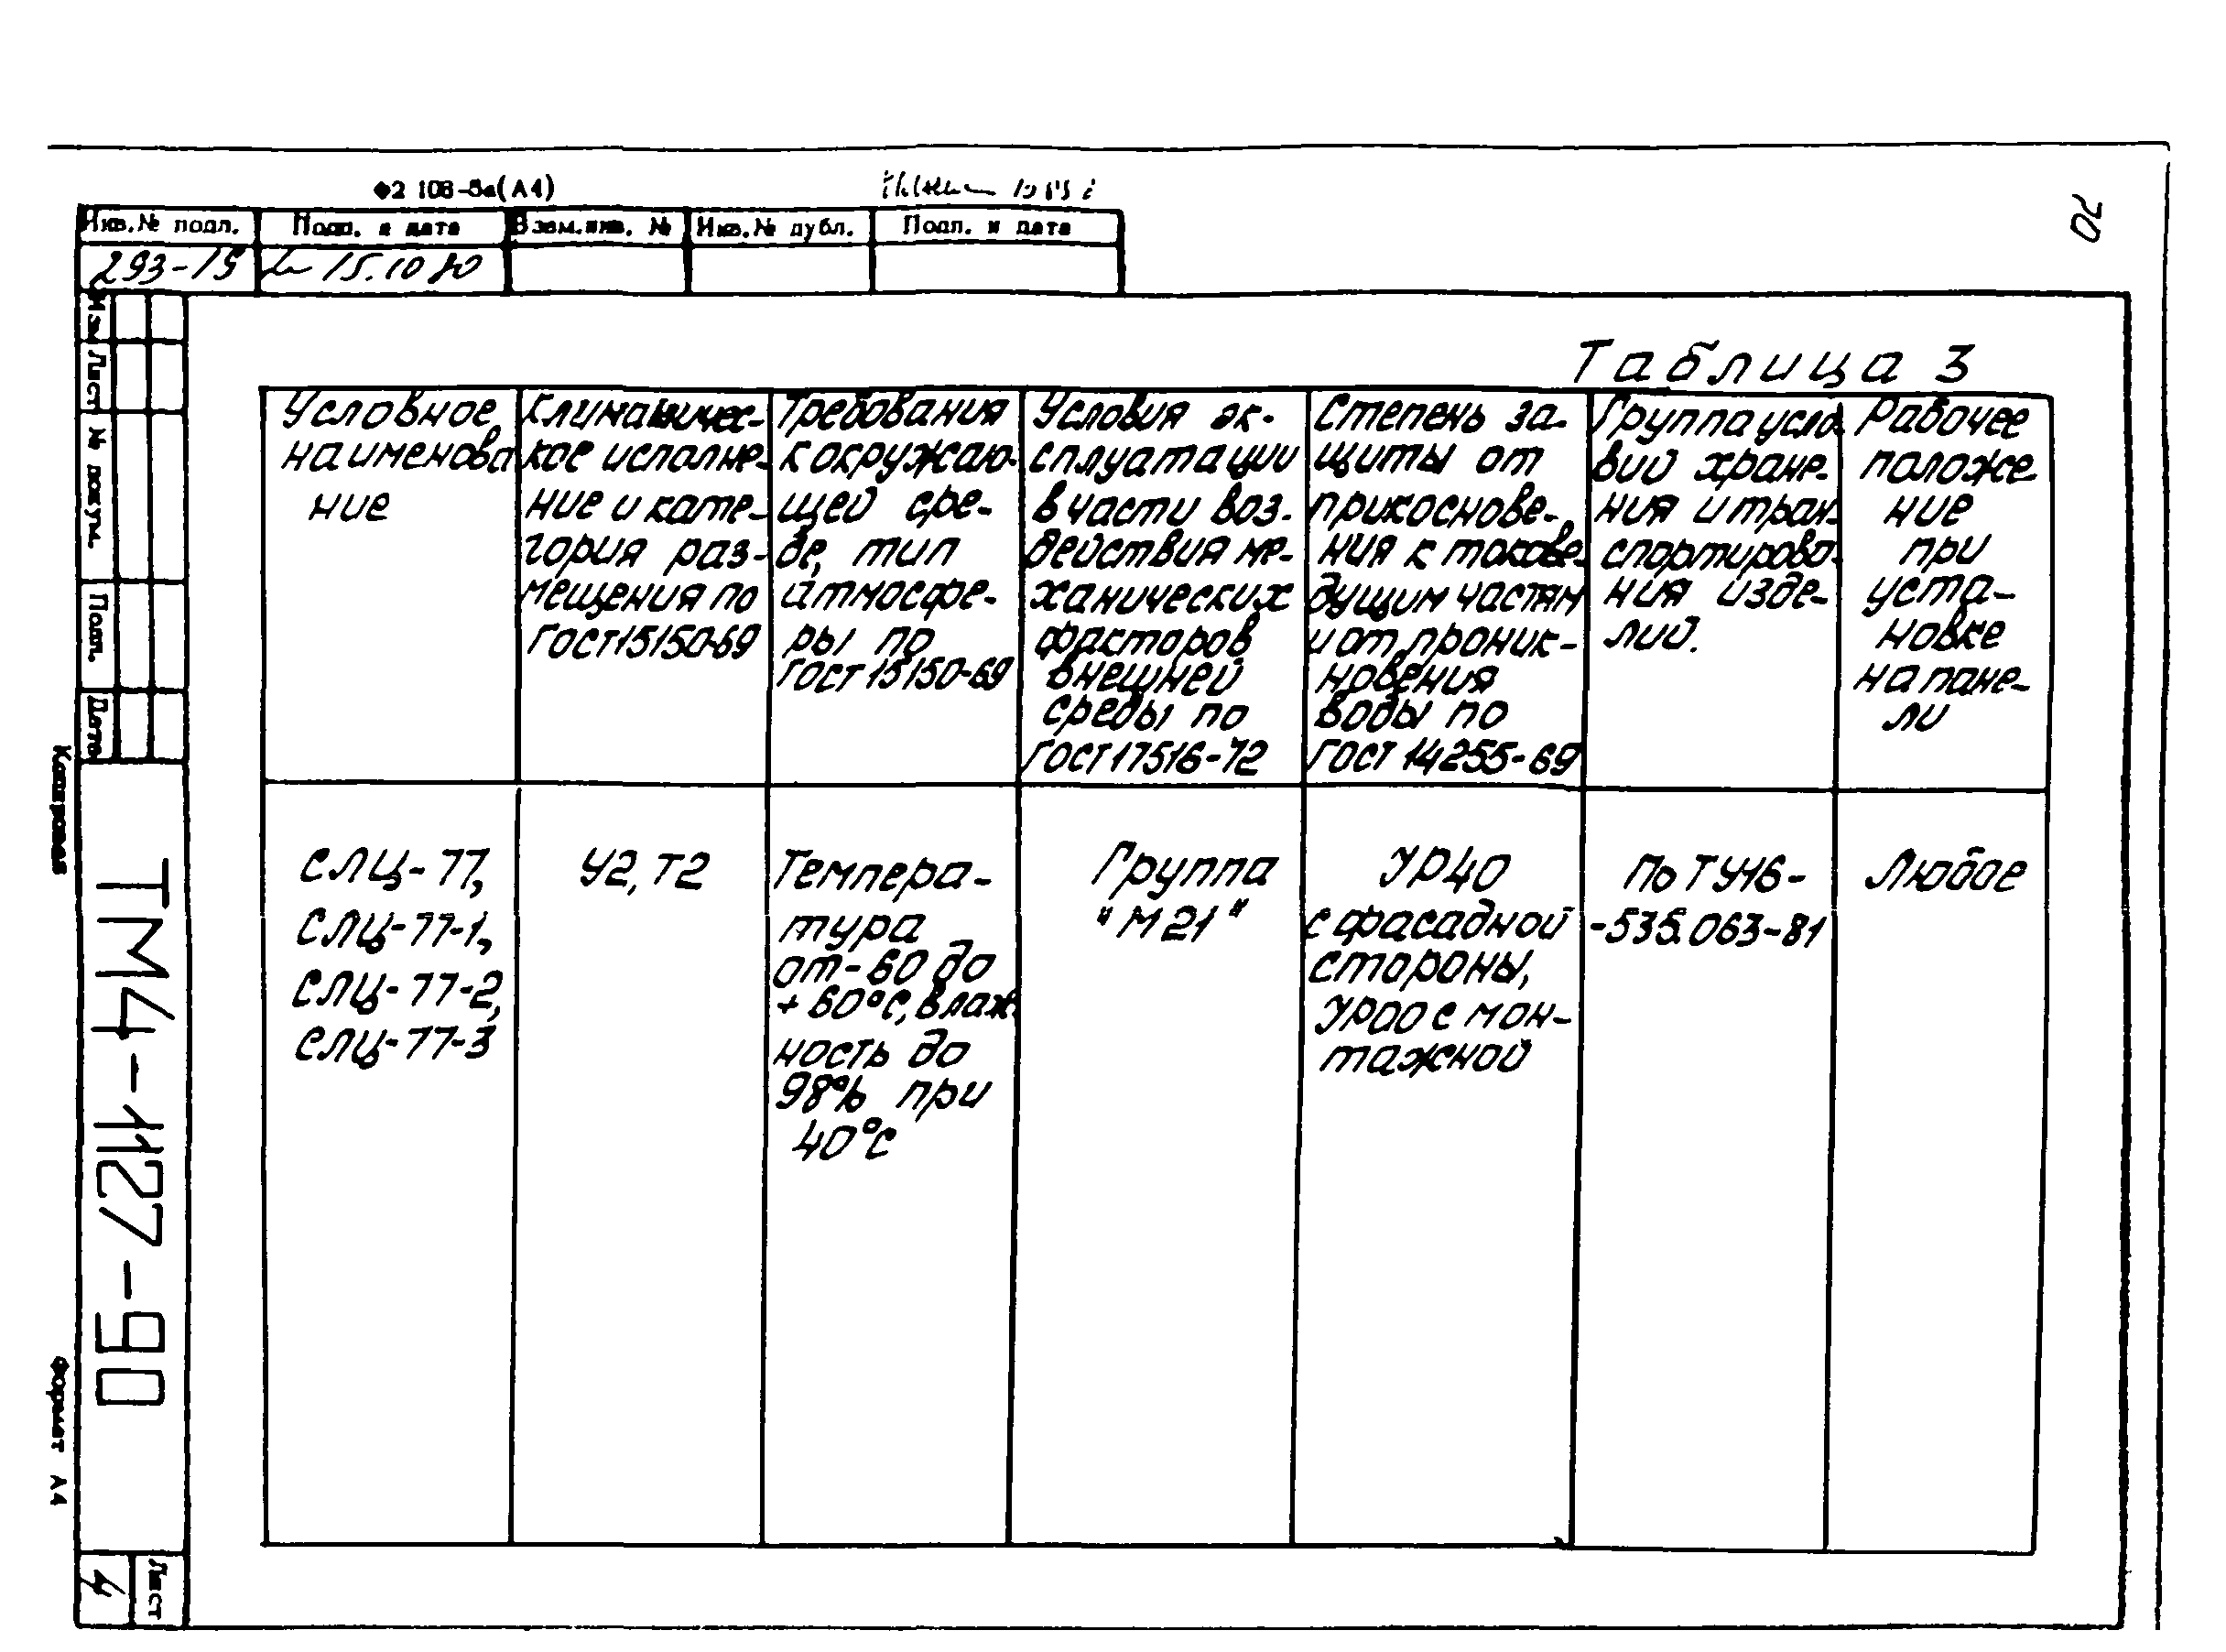 Ф2 108-5а(А4)
70
Инв.№ подл. Подп. и дата Взам.инв. № Инв.№ дубл. Подп. и дата
293-15 15.10.90
Изм Лист № докум. Подп. Дата
Таблица 3
Условное наименова ние
Климатичес-
кое исполне-
ние и кате-
гория раз-
мещения по
ГОСТ 15150-69
Требования
к окружаю-
щей сре-
де, тип
атмосфе-
ры по
ГОСТ 15150-69
Условия эк-
сплуатации
в части воз-
действия ме-
ханических
факторов
внешней
среды по
ГОСТ 17516-72
Степень за-
щиты от
прикоснове-
ния к токове-
дущим частям
и от проник-
новения
воды по
ГОСТ 14255-69
Группа усло-
вий хране-
ния и тран-
спортирова-
ния изде-
лий.
Рабочее
положе-
ние
при
уста-
новке
на пане-
ли
СЛЦ-77,
СЛЦ-77-1,
СЛЦ-77-2,
СЛЦ-77-3
У2, Т2
Темпера-
тура
от -60 до
+60°С, влаж-
ность до
98% при
40°С
Группа
"М21"
УР40
с фасадной
стороны,
УР00 с мон-
тажной
По ТУ16-
-535.063-81
Любое
Копировал
ТМ4-1127-90
Формат А4
Лист
4